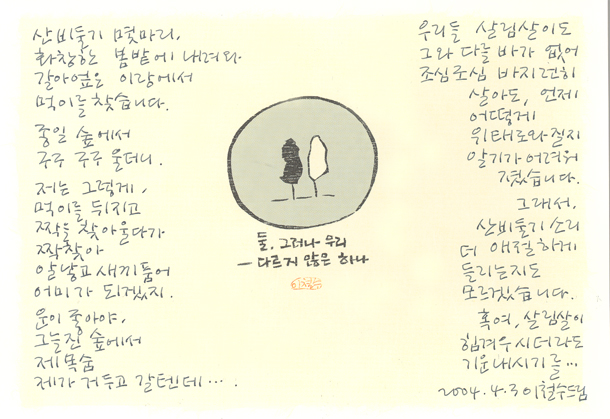 산비둘기 몇마리,
화창한 봄밭에 내려와
갈아엎은 이랑에서
먹이를 찾습니다.
종일 숲에서
구구 구구 울더니.
저는 그렇게,
먹이를 뒤지고
짝을 찾아울다가
짝찾아
알낳고 새끼품어
어미가 되겠지.
운이 좋아야,
그늘진 숲에서
제 목숨
제가 거두고 갈텐데….
둘, 그러나 우리
─ 다르지 않은 하나
이철수
우리들 살림살이도
그와 다를 바가 없어
조심조심 바지런히
살아도, 언제
어떻게
위태로와질지
알기가 어려워
졌습니다.
그래서,
산비둘기 소리
더 애절하게
들리는지도
모르겠습니다.
혹여, 살림살이
힘겨우시더라도
기운내시기를…
2004.4.3 이철수드림